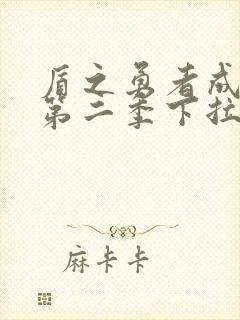 盾之勇者成
第二季下拉
麻卡卡